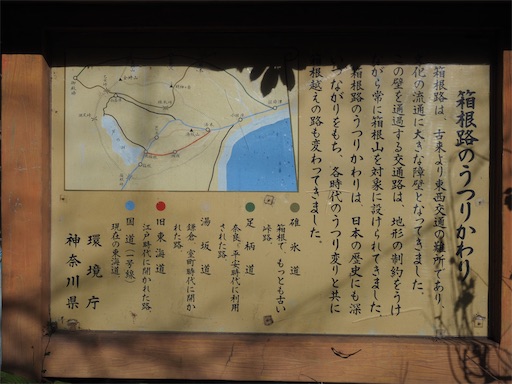 箱根路のうつりかわり
箱根路は、古来より東西交通の難所であり、
化の流通に大きな障壁となってきました。
の壁を通過する交通路は、地形の制約をうけ
がら常に箱根山を対象に設けられてきました。
箱根路のうつりかわりは、日本の歴史にも深
つながりをもち、各時代のうつり変りと共に
根越えの路も変わってきました。
碓氷道
箱根で、もっとも古い
峠路。
足柄道
奈良、平安時代に利用
された路。
湯坂道
鎌倉、室町時代に開か
れた路。
旧東海道
江戸時代に開かれた路。
国道(一号線)
現在の東海道。
環境庁
神奈川県